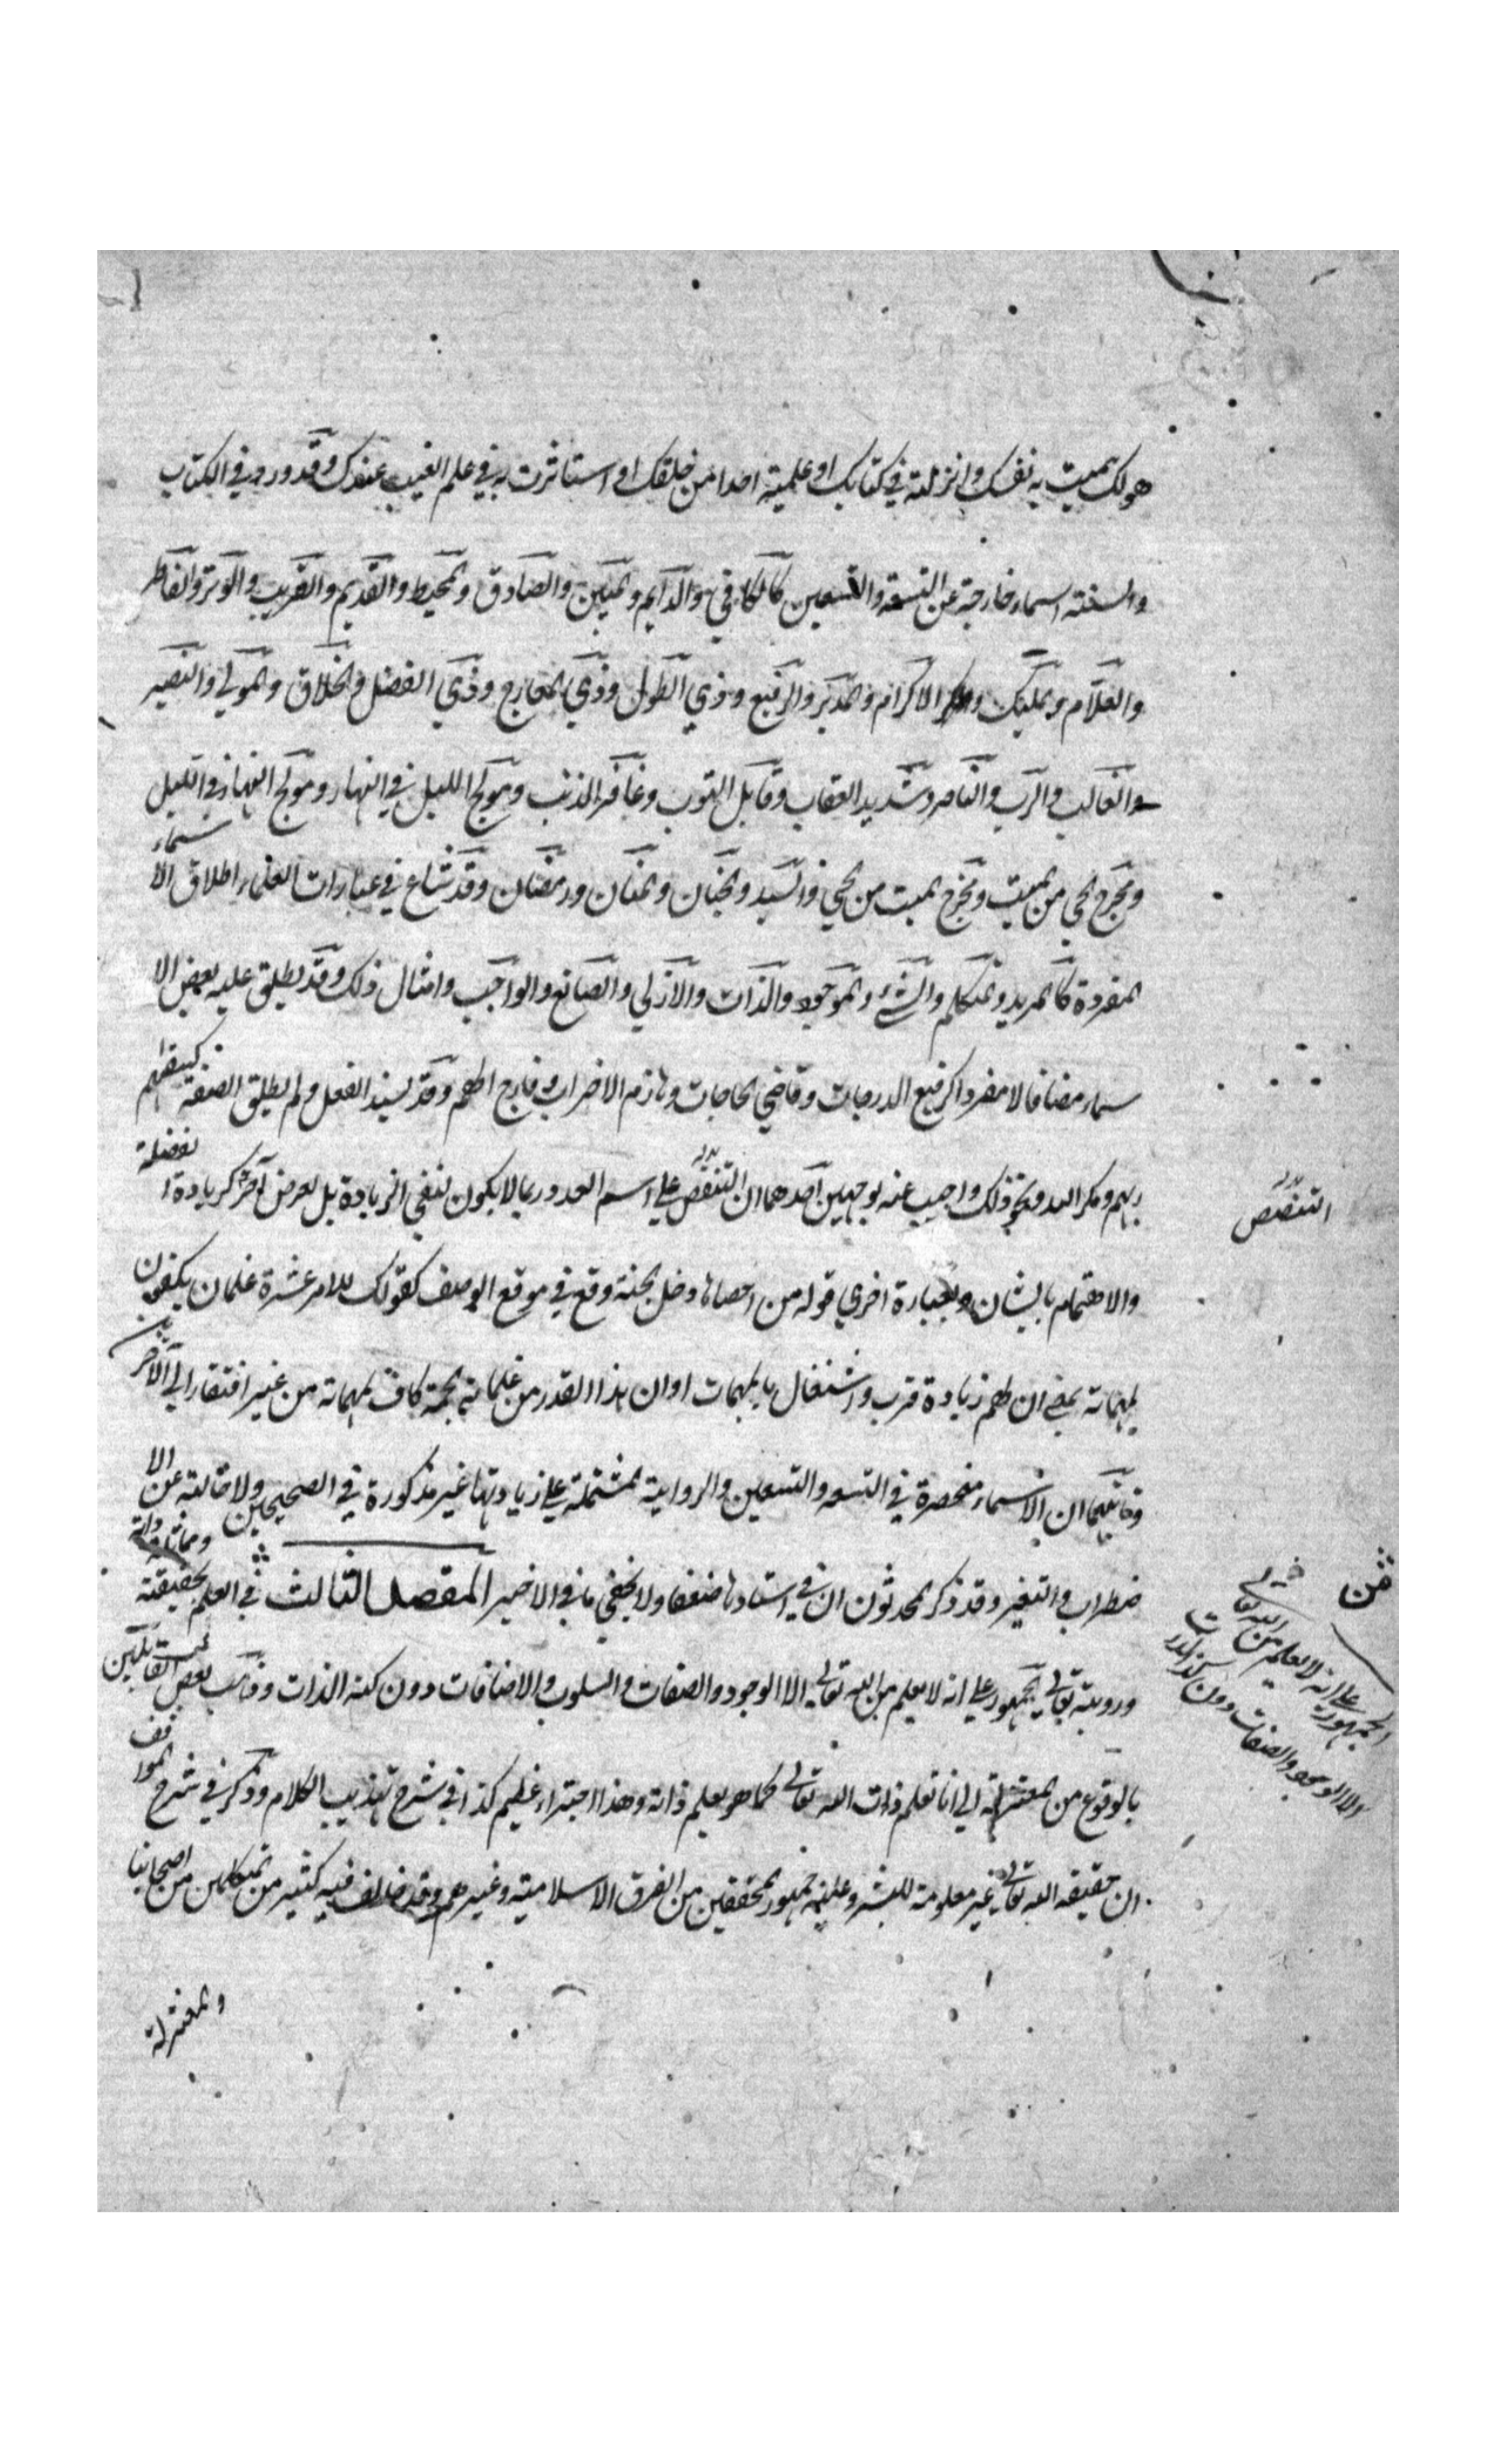 هولك سميت به نفسك وانزلته في كتابك او علمته احدا من خلقك او استاثرت به في علم الغيب عندك وقد ورد في الكتاب
والسنته اسماء خارجة عن التسعة والتسعين كالكافي والدايم والمبين والصادق والمحيط والقديم والقريب والوتر والفاطر
والعلام والمليك والاكرام والمدبر والرفيع وذي الطول وذي المعارج وذي الفضل والخلاق والمولي والنصير
والغالب والرب والناصر وشديد العقاب وقابل التوب وغافر الذنب ومولج الليل في النهار ومولج النهار في الليل
ومخرج الحي من الميت ومخرج الميت من الحي والسيد والحنان والمنان ورمضان وقد شاع في عبارات العلماء اطلاق الا سماء
المفردة كالمريد والمتكلم والشئ والموجود والذات والازلي والصانع والواجب وامثال ذلك وقد يطلق عليه بعض الا
سماء مضافا لا مفردا كرفيع الدرجات وقاضي الحاجات وهازم الاحزاب وفارج الهم وقد يسند الفعل ولم يطلق الصفة كسقاهم
ربهم ومكر الله ونحو ذلك واجيب عنه بوجهين احدهما ان التنصص علي اسم العدد ربما لا يكون لنفي الزيادة بل لعرض آخر كزيادة الفضيلة
التنصص
والاهتمام بالشان وبعبارة اخري قوله من احصاها دخل الجنة وقع في موقع الوصف كقولك للامر عشرة غلمان يكفون
لمهماته بمعني ان لهم زيادة قرب واشتغال بالمهمات او ان هذا القدر من غلمانه الجمة كاف لمهماته من غير افتقار الي الآخر
وثانيهما ان الاسماء منحصرة في التسعه والتسعين والرواية المشتملة علي زيادتها غير مذكورة في الصحيحين ولا خالية عن الا
ضطراب والتغير وقد ذكر المحدثون ان في اسنادها ضعفا ولا يخفي ما في الاخير المقصد الثالث في العلم بحقيقته
ورويته تعالي الجمهور علي انه لا يعلم من الله تعالي الا الوجود والصفات والسلوب والاضافات دون كنه الذات وذهب بعض القايلين
الجمهور علي انه لا يعلم من الله تعالي
الا الوجود والصفات دون كنه الذات
بالوقوع من المعتزلة الي انا نعلم ذات الله تعالي كما هو يعلم ذاته وهذا اجتراء عظيم كذا في شرح تهذيب الكلام وذكر في شرح المواقف
ان حقيقه الله تعالي غير معلومة للبشر وعليه جمهور المحققين من الفرق الاسلامية وغيرهم وقد خالف فيه كثير من المتكلمين من اصحابنا
والمعتزلة